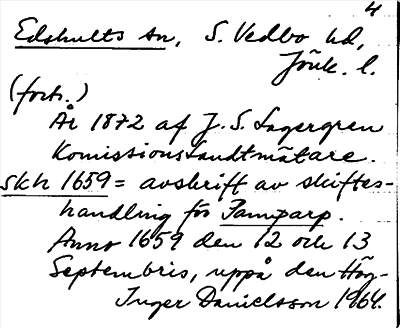 4
Edshults sn, S. Vedbo hd,
Jönk. l.
(forts.)
År 1872 af J. S. Lagergren
Komissionslandtmätare.
skh 1659 = avskrift av skiftes-
handling för Famparp.
Anno 1659 den 12 och 13
Septembris, uppå den Hög-
Inger Danielsson 1964.